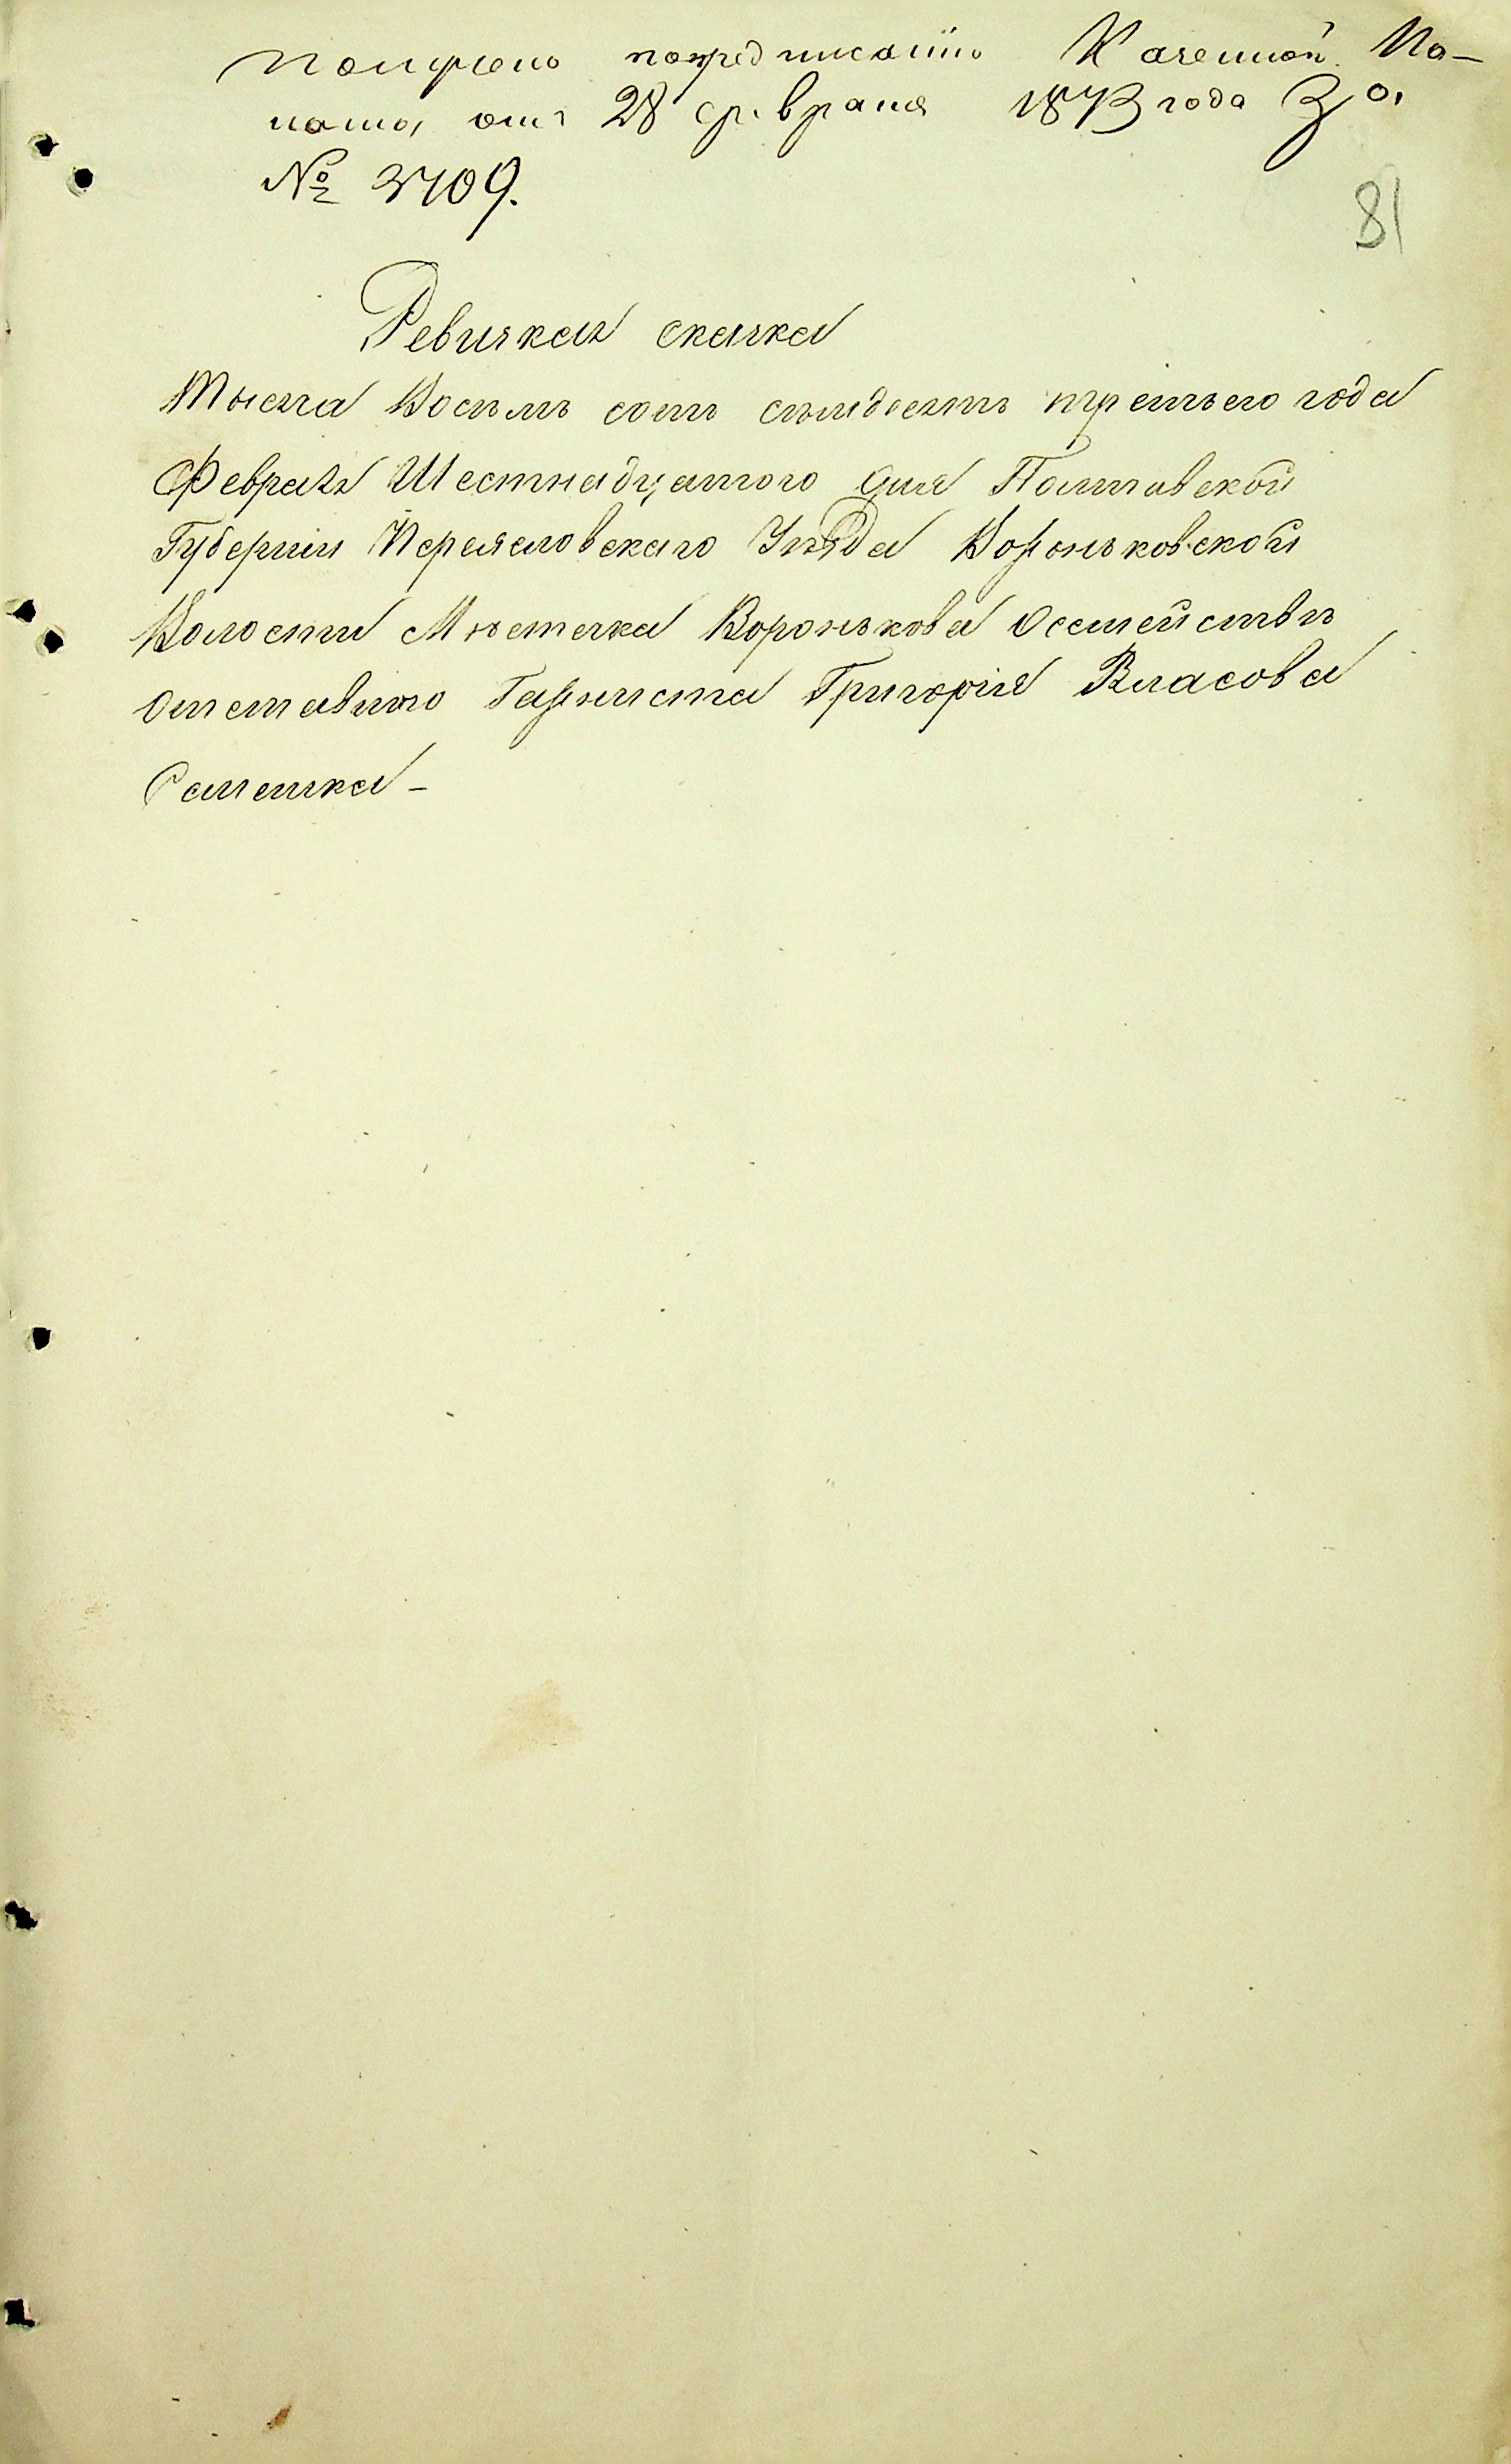 получено по предписанію Казенной Па-
латы отъ 28 февраля 1873 года за
№ 3709.
81
Ревизкая сказка
Тысяча Восѣмъ сотъ сѣмдесятъ третьего года
Февраля Шестнадцатого дня Полтавской
Губерніи Переяславскаго Уѣзда Воронъковской
Волости Мѣстечка Воронъкова Осемействѣ
отставного Григорія Власова